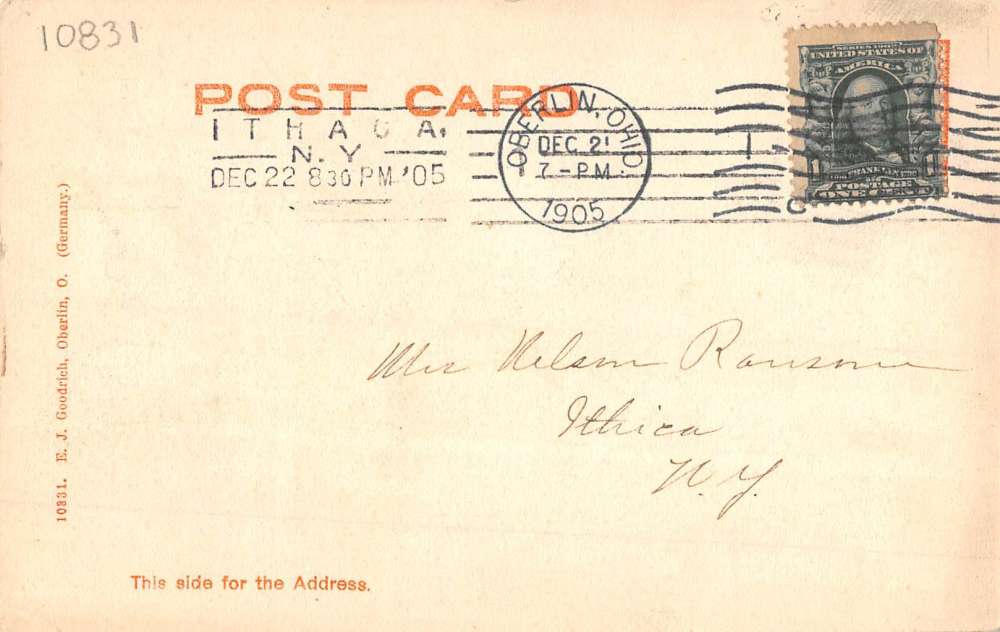 10831
POST CARD
ITHACA,
N.Y
DEC 22 830 PM '05
OBERLIN, OHIO.
DEC 21
7-PM
1905
SERIES 1902
UNITED STATES OF
AMERICA
FRANKLIN
POSTAGE
ONE
Mrs Nelson Ransome
Ithica
N.Y.
10831. E. J. Goodrich, Oberlin, O. (Germany.)
This side for the Address.